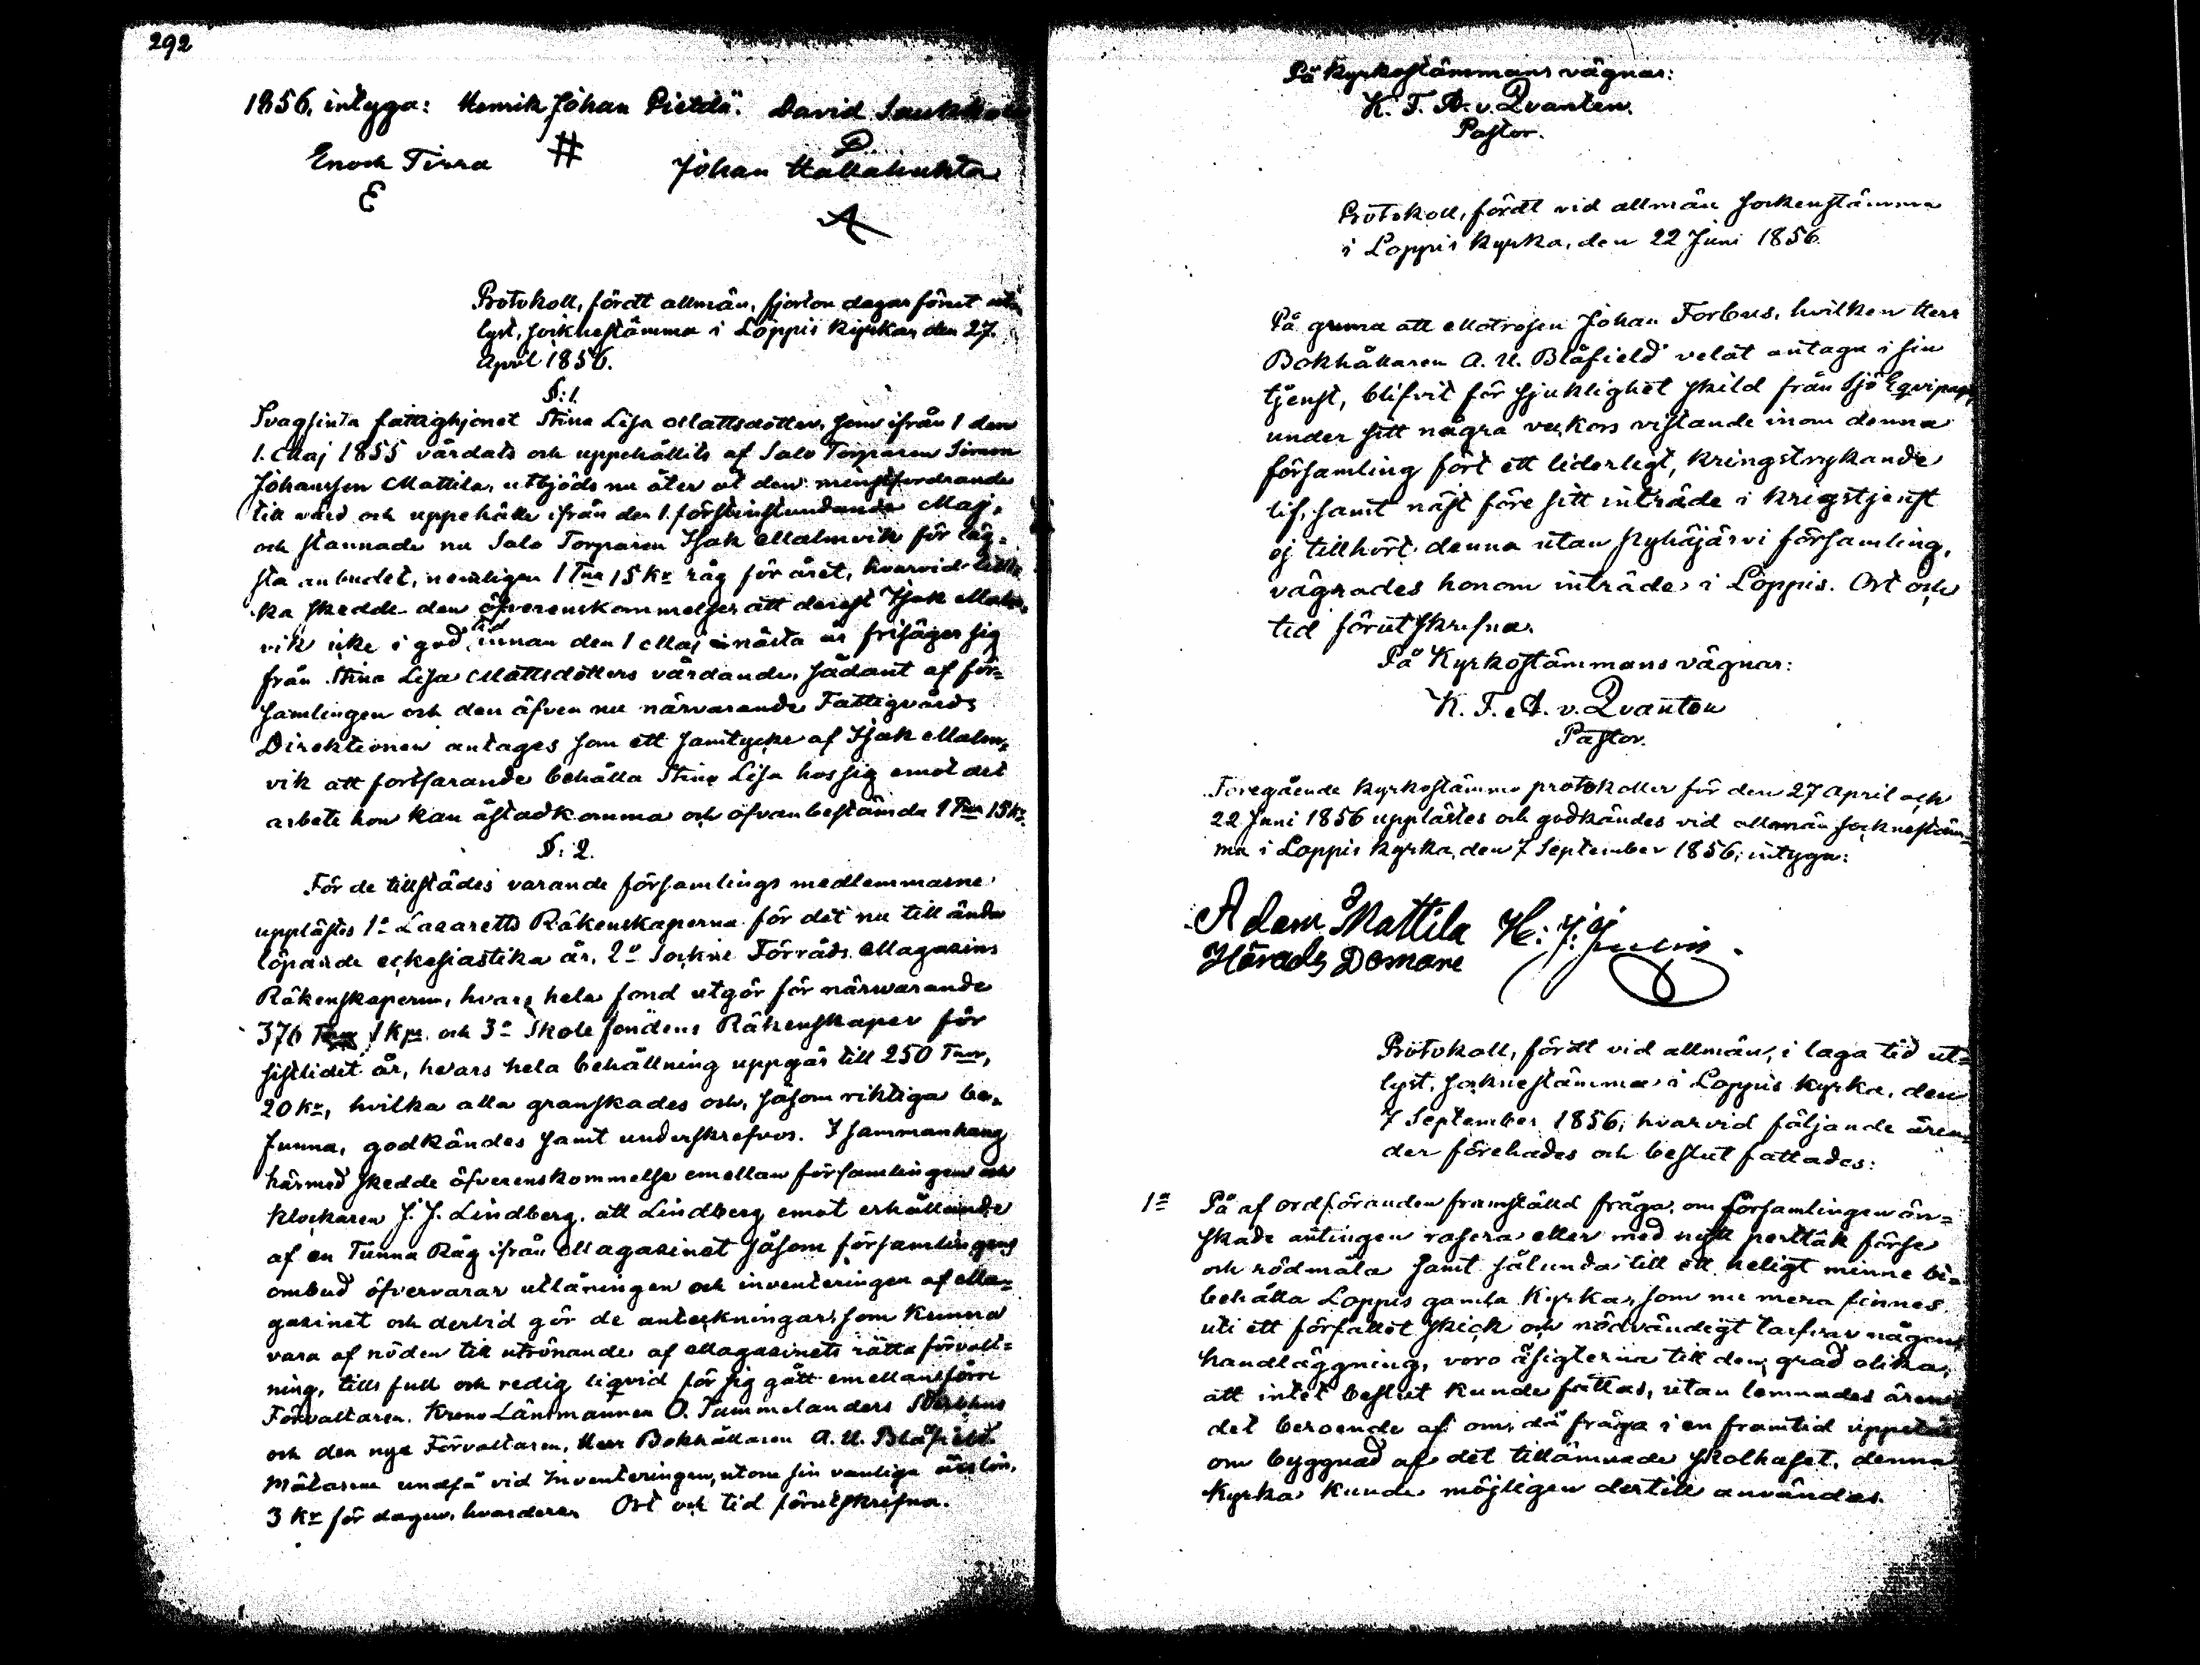 292
1856, intyga: Henrik Johan Pietilä. David
Enock Tirra # Johan Hallahuhta
E
A
Protokoll, fördt allmän, fjorton dagar förut
lyst, socknestämma i Loppis kyrka, den 27.
April 1856.
§:1.
Svagsinta fattighjonet Stina Lisa Mattsdotter, som ifrån 1 den
1. Maj 1855 vårdats och uppehållits af Salo Torparen Simon
Johansson Mattila, utbjöds nu åter åt den minstfordrande
till vård och uppehälle ifrån den 1. förstinstundande Maj,
och stannade nu Salo Torparen Isak Malmvik för läg=
sta anbudet, nemligen 1 Tna 15 Kr råg för året, hvarvid
ka skedde den öfverenskommelser att derest Isak Malm=
vik icke i god tid innan den 1 Maj nästa år frisäger sig
från Stina Lisa Mattsdotters vårdande, sådant af för=
samlingen och den äfven nu närvarande Fattigvårds
Direktionen antages som ett samtycke af Isak Malm=
vik att fortfarande behålla Stina Lisa hos sig emot det
arbete hon kan åstadkomma och ofvanbestämda 1 Tna 15 Kr.
§: 2.
För de tillstädes varande församlings medlemmarne
upplästes 1o Lazaretts Räkenskaperna för det nu till ända
löpande eckesiastika år, 2o Sockne Förråds Magazins
Räkenskaperna, hvars hela fond utgör för närwarande
376 1 Kpr och 3o Skole fondens Räkenskaper för
sistlidet år, hvars hela behållning uppgår till 250 Tnr,
20 Kr, hvilka alla granskades och, såsom riktiga be=
funna, godkändes samt underskrefvos. I sammanhang
härmed skedde öfverenskommelse emellan församlingen och
klockaren J. J. Lindberg, att Lindberg emot erhållande
af en Tunna Råg ifrån Magazinet såsom församlingens
ombud öfvervarar utlåningen och inventeringen af Ma=
gazinet och dervid gör de anteckningar, som kunna
vara af nöden till utrönande af Magazinets rätta förvalt=
ning, tills full och redig liqvid för sig gått emellan förre
Förvaltaren, Krono Länsmannen O. Tammelanders Sterbhus
och den nya Förvaltaren, Herr Bokhållaren A. U. Blåfield.
Mätarene undfå vid Inventeringen, utom sin vanliga årslön,
3 Kr för dagen, hvardera. Ort och tid förutskrefna.
På Kyrkostämmans vägnar:
K. F. A. v. Qvanten.
Pastor.
Protokoll, fördt vid allmän sockenstämma
i Loppis kyrka, den 22 Juni 1856.
På grund att Matrosen Johan Forbus, hvilken Herr
Bokhållaren A. U. Blåfield velat antaga i sin
tjenst, blifvit för sjuklighet skild från Sjö
under sitt några veckors vistande inom denna
församling fört ett liderligt, kringstrykande
lif, samt näst före sitt inträde i krigstjenst
ej tillhört denna utan Pyhäjärvi församling,
vägrades honom inträde i Loppis. Ort och
tid förutskrefna.
På Kyrkostämmans vägnar:
K. F. A. v. Qvanten
Pastor.
Föregående kyrkostämmo protokoller för den 27 April och
22 Juni 1856 upplästes och godkändes vid allmän socknestäm=
ma i Loppis kyrka, den 7 September 1856; intyga:
Adam Mattila H: J:
Härads Domare
Protokoll, fördt vid allmän, i laga tid ut=
lyst, socknestämma i Loppis kyrka, den
7 September 1856; hvarvid följande ären=
der förehades och beslut fattades:
1o På af ordföranden framställd fråga, om församlingen ön=
skade antingen rasera eller med nytt perttak förse
och rödmåla samt sålunda till ett heligt minne bi=
behålla Loppis gamla Kyrka, som nu mera finnes
uti ett förfallet skick och nödvändigt tarfvar någon
handläggning, voro åsigterna till den grad olika,
att intet beslut kunde fattas, utan lemnades ären=
det beroende af om, då fråga i en framtid
om byggnad af det tillämnade skolhuset, denna
Kyrka kunde möjligen dertill användas.